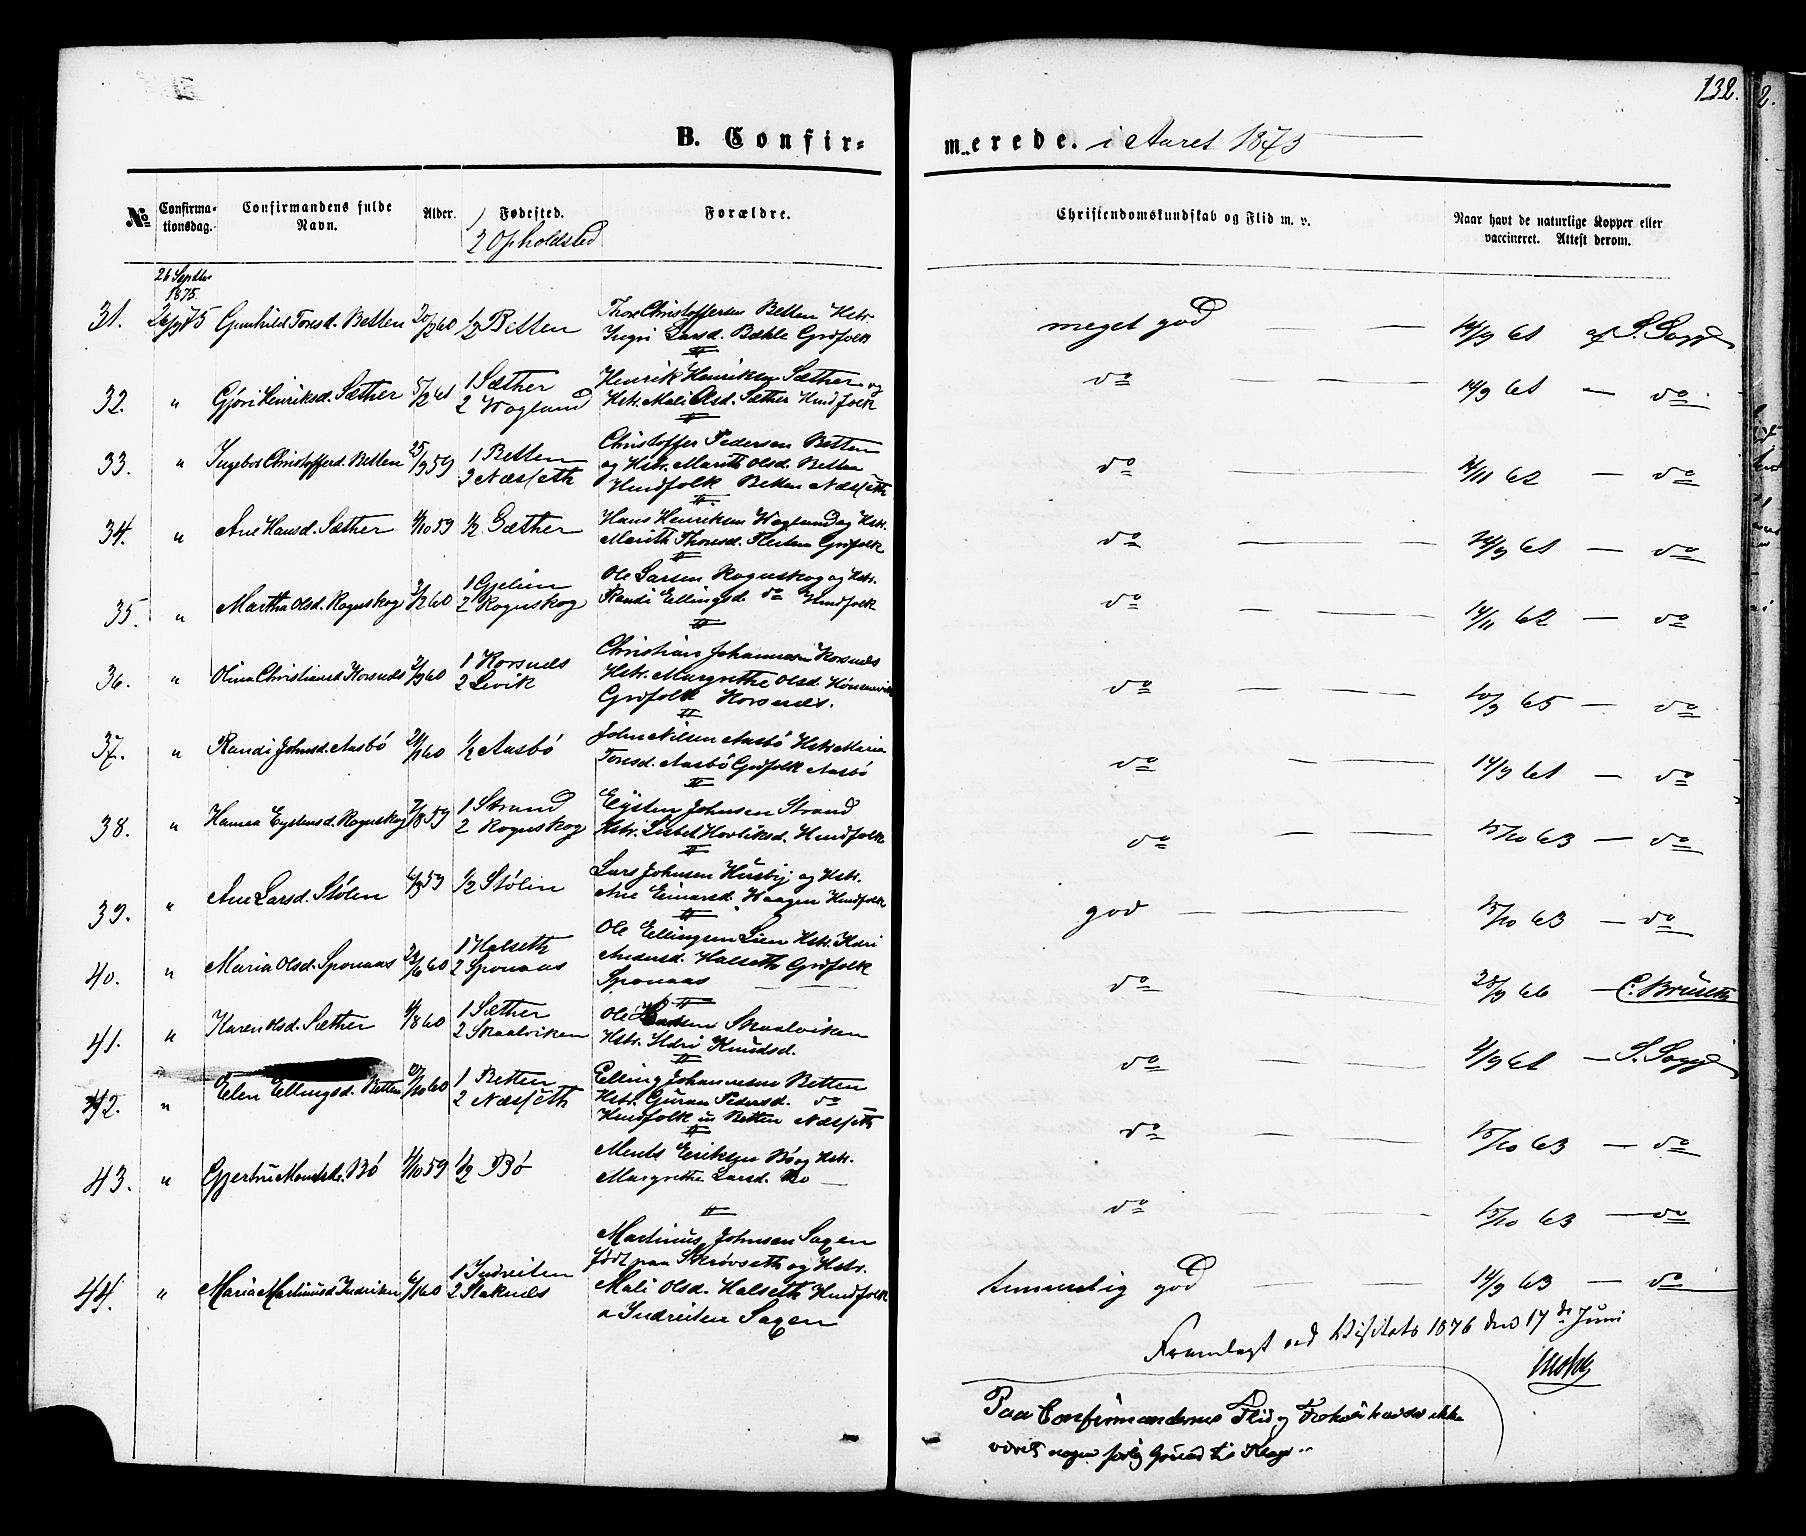 132.
B. Confirmerede. i Aaret 1875
No
Confirmationsdag.
Confirmandens fulde Navn.
Alder.
1 Fødested.
2 Opholdsted
Forældre.
Christendomskundskab og Flid m. v.
Naar havt de naturlige Kopper eller
vaccineret. Attest derom.
26 Septbr
1875.
31. 26/9 75 Gunhild Toresd. Betten 60 1/2 Betten
Thore Christoffersen Betten Hstr.
Ingri Larsd. Bakle Grdfolk
meget god 61 af S. Sopp
32. " Gjøri Henriksd. Sæther 5/2 61 1 Sæther
2 Wogland
Henrik Henriksen Sæther og
Hstr. Mali Olsd. Sæther Hmdfolk
do 14/9 61 — do
33. " Ingebor Christofferd. Betten 25/9 59 1 Betten
2 Næsseth
Christoffer Pedersen Betten
og Hstr. Marith Olsd. Betten
Hmdfolk Betten Næsseth
do 62 — do
34. " Ane Hansd. Sæther 59 1/2 Sæther
Hans Henriksen Wogland og Hstr.
Marith Thoresd. Grdfolk
do 61 — do
35. " Martha Olsd. Rognskog 60 1 Gjelien
2 Rognskog
Ole Larsen Rognskog og Hstr.
Randi Ellingsd. do Hmdfolk
do 14/11 62 — do
36. " Olina Christiansd Korsnæs 60 1 Korsnæs
2 Levik
Christian Johannesen Korsnæs
Hstr. Margrethe Olsd.
Grdfolk Korsnæs.
do 65 — do
37. " Randi Johnsd. Aasbö 60 1/2 Aasbö
John Nilsen Aasbö Hstr. Maria
Toresd. Aasbö Grdfolk Aasbö
do 14/9 61 — do
38. " Hanna Eystensd. Rognskog 59 1 Strand
2 Rognskog
Eysten Johnsen Strand
Hstr. Hmdfolk
do 15/10 63 — do
39. " Ane Larsd. Stølen 59 1/2 Stølen
Lars Johnsen Husby og Hstr.
Ane Einarsd. Haagen Hmdfolk
god 15/10 63 — do
40. " Maria Olsd. Sponaas 60 1 Halseth
2 Sponaas
Ole Ellingsen Lien Hstr. Ildri
Andersd. Halseth Grdfolk
Sponaas
do 66 —
41. " Karen Olsd. Sæther 60 1 Sæther
2 Skaalviken
Ole Skaalviken
Hstr. Ildri Knudsd.
do 61 — S. Sopp
42. " Elen Ellingsd. Betten 60 1 Betten
2 Næsseth
Elling Johannesen Betten
Hstr. Guran Pedersd. do
Hmdfolk u Betten Næsseth
do 15/10 63 — do
43. " 59 1/2 Bö
Ments Eriksen Bö og Hstr.
Margrethe Larsd. Bö
do 15/10 63 — do
44. " Maria Martinusd Indreiten 60 1 Indreiten
2 Staknæs
Martinus Johnsen Sagen
født paa og Hstr.
Mali Olsd. Halseth Hmdfolk
a Indreiten Sagen
temmelig god 14/9 63 — do
Fremlagt ved Visitats 1876 den 17de Juni
Paa Confirmandernes Flid og Forhold haver ikke
været nogen Grund til Klage